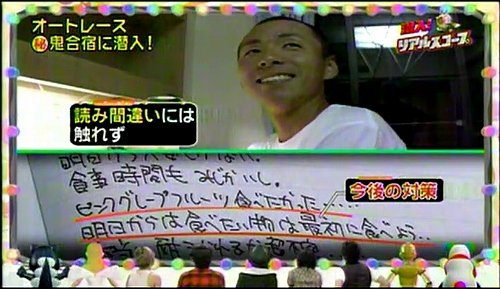 オートレース
㊙鬼合宿に潜入！
潜入！
リアルスコープ
読み間違いには
触れず
食事時間もみじかいし。
今後の対策
ピンクグレープフルーツ食べたかった…
明日からは食べたい物は最初に食べよう…